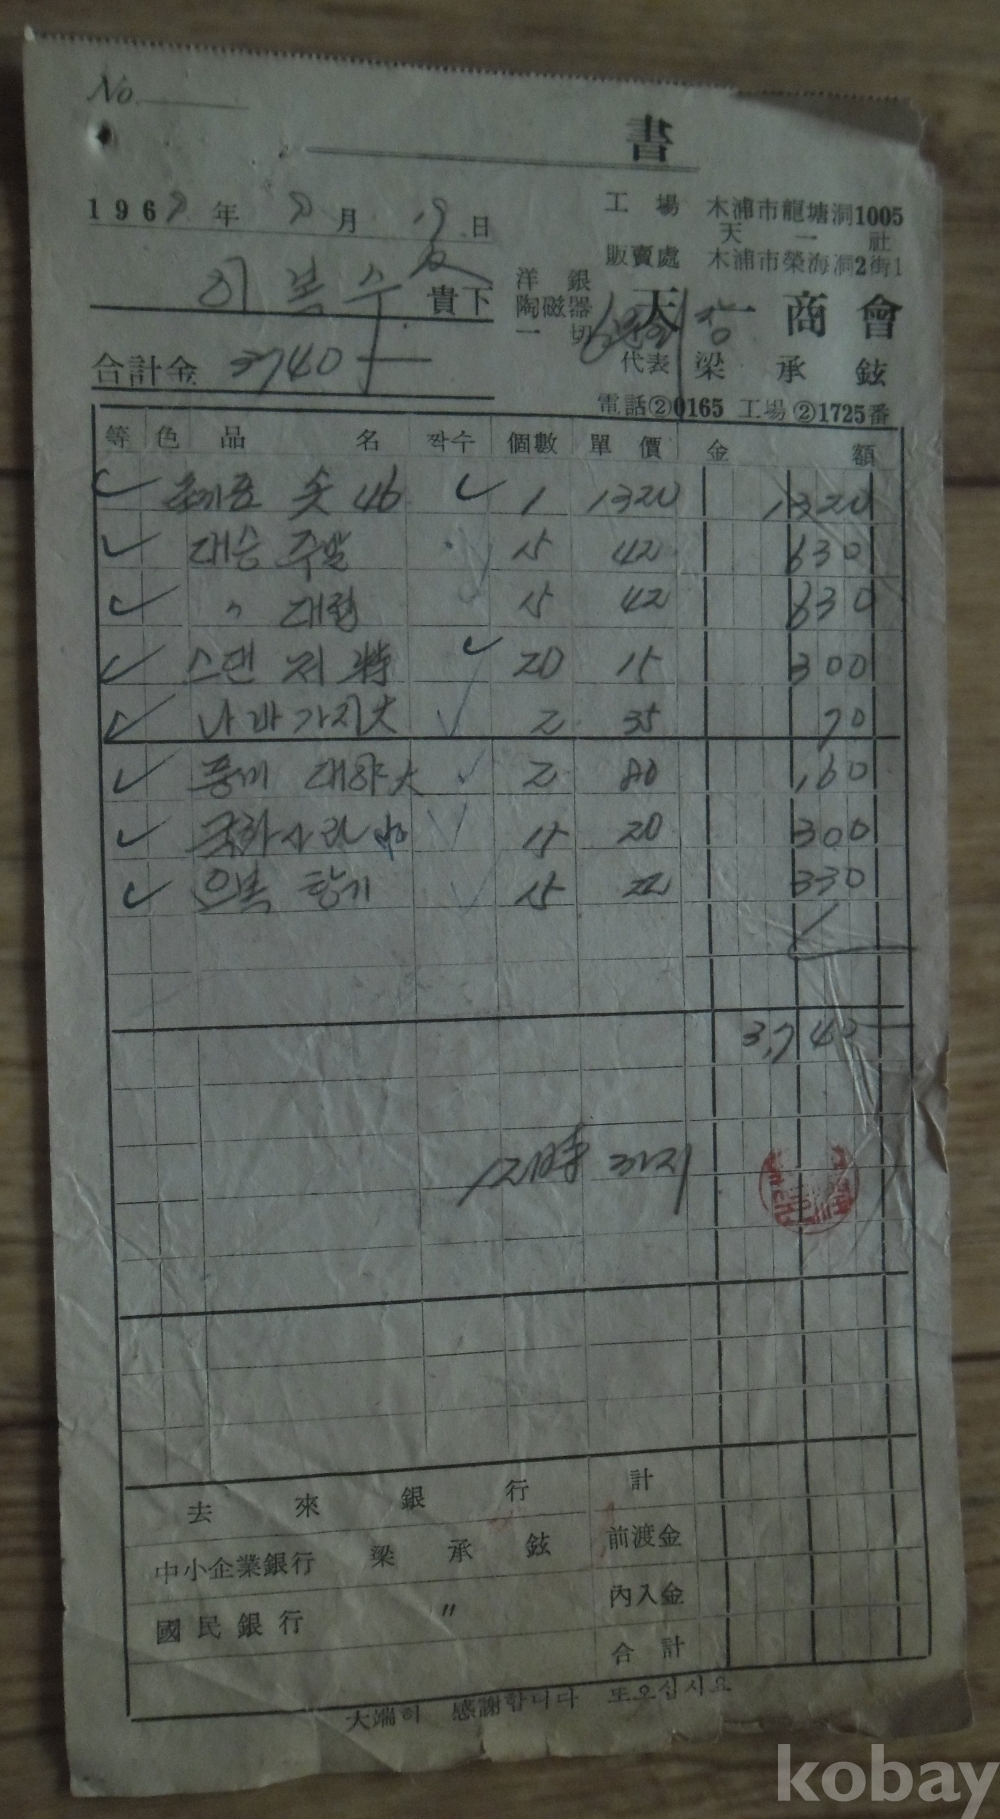 No.
書
1969年 9月 19日
工場 木浦市龍塘洞1005
天一社
販賣處 木浦市榮海洞2街1
貴下
洋銀
陶磁器
一切
天一商會
代表 梁承鉉
合計金 3740
電話②0165 工場②1725番
等 色 品名 짝수 個數 單價 金額
솟 46 1 1320 1320
대승 주발 15 42 630
〃 대접 15 42 630
스텐 저 特 20 15 300
나바가지 大 2 35 70
풍미 대야 大 2 80 160
국화사라 中 15 20 300
15 22 330
3,740
12時
去來銀行 計
中小企業銀行 梁承鉉 前渡金
國民銀行 〃 內入金
合計
大端히 感謝합니다 또오십시요
kobay